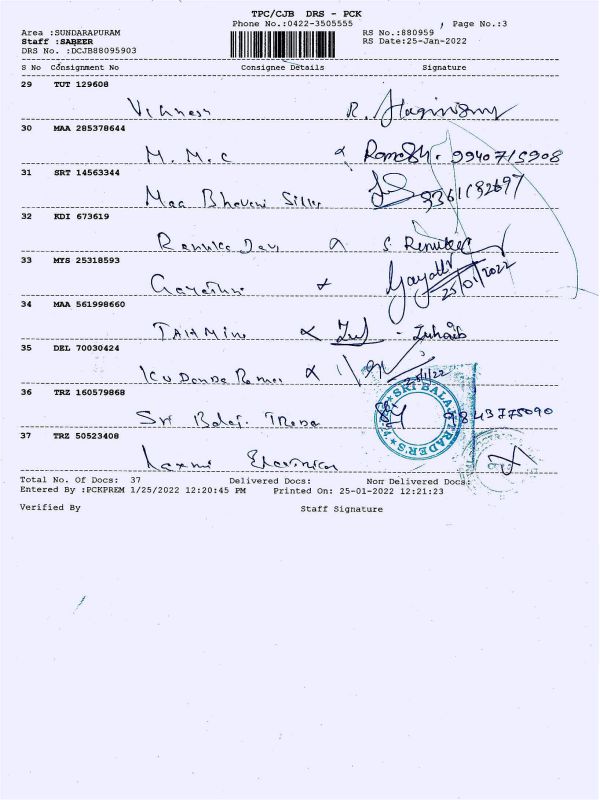 TPC/CJB DRS - PCK
Phone No.:0422-3505555 Page No.:3
Area :SUNDARAPURAM RS No.:880959
Staff :SABEER RS Date:25-Jan-2022
DRS No. :DCJB88095903
S No Consignment No Consignee Details Signature
29 TUT 129608
Vignesh R.
30 MAA 285378644
M. M. C Ramesh. 9940715908
31 SRT 14563344
Maa Bhavani Silks 9361182697
32 KDI 673619
Renuka Devi S. Renuka
33 MYS 25318593
Gayathri Gayathri
25/01/2022
34 MAA 561998660
TAHMIN - Zuhaib
35 DEL 70030424
25/1/22
36 TRZ 160579868
Sri Balaji 9843775090
SRI BALAJI TRADERS
37 TRZ 50523408
Laxmi
Total No. Of Docs: 37 Delivered Docs: Non Delivered Docs:
Entered By :PCKPREM 1/25/2022 12:20:45 PM Printed On: 25-01-2022 12:21:23
Verified By Staff Signature